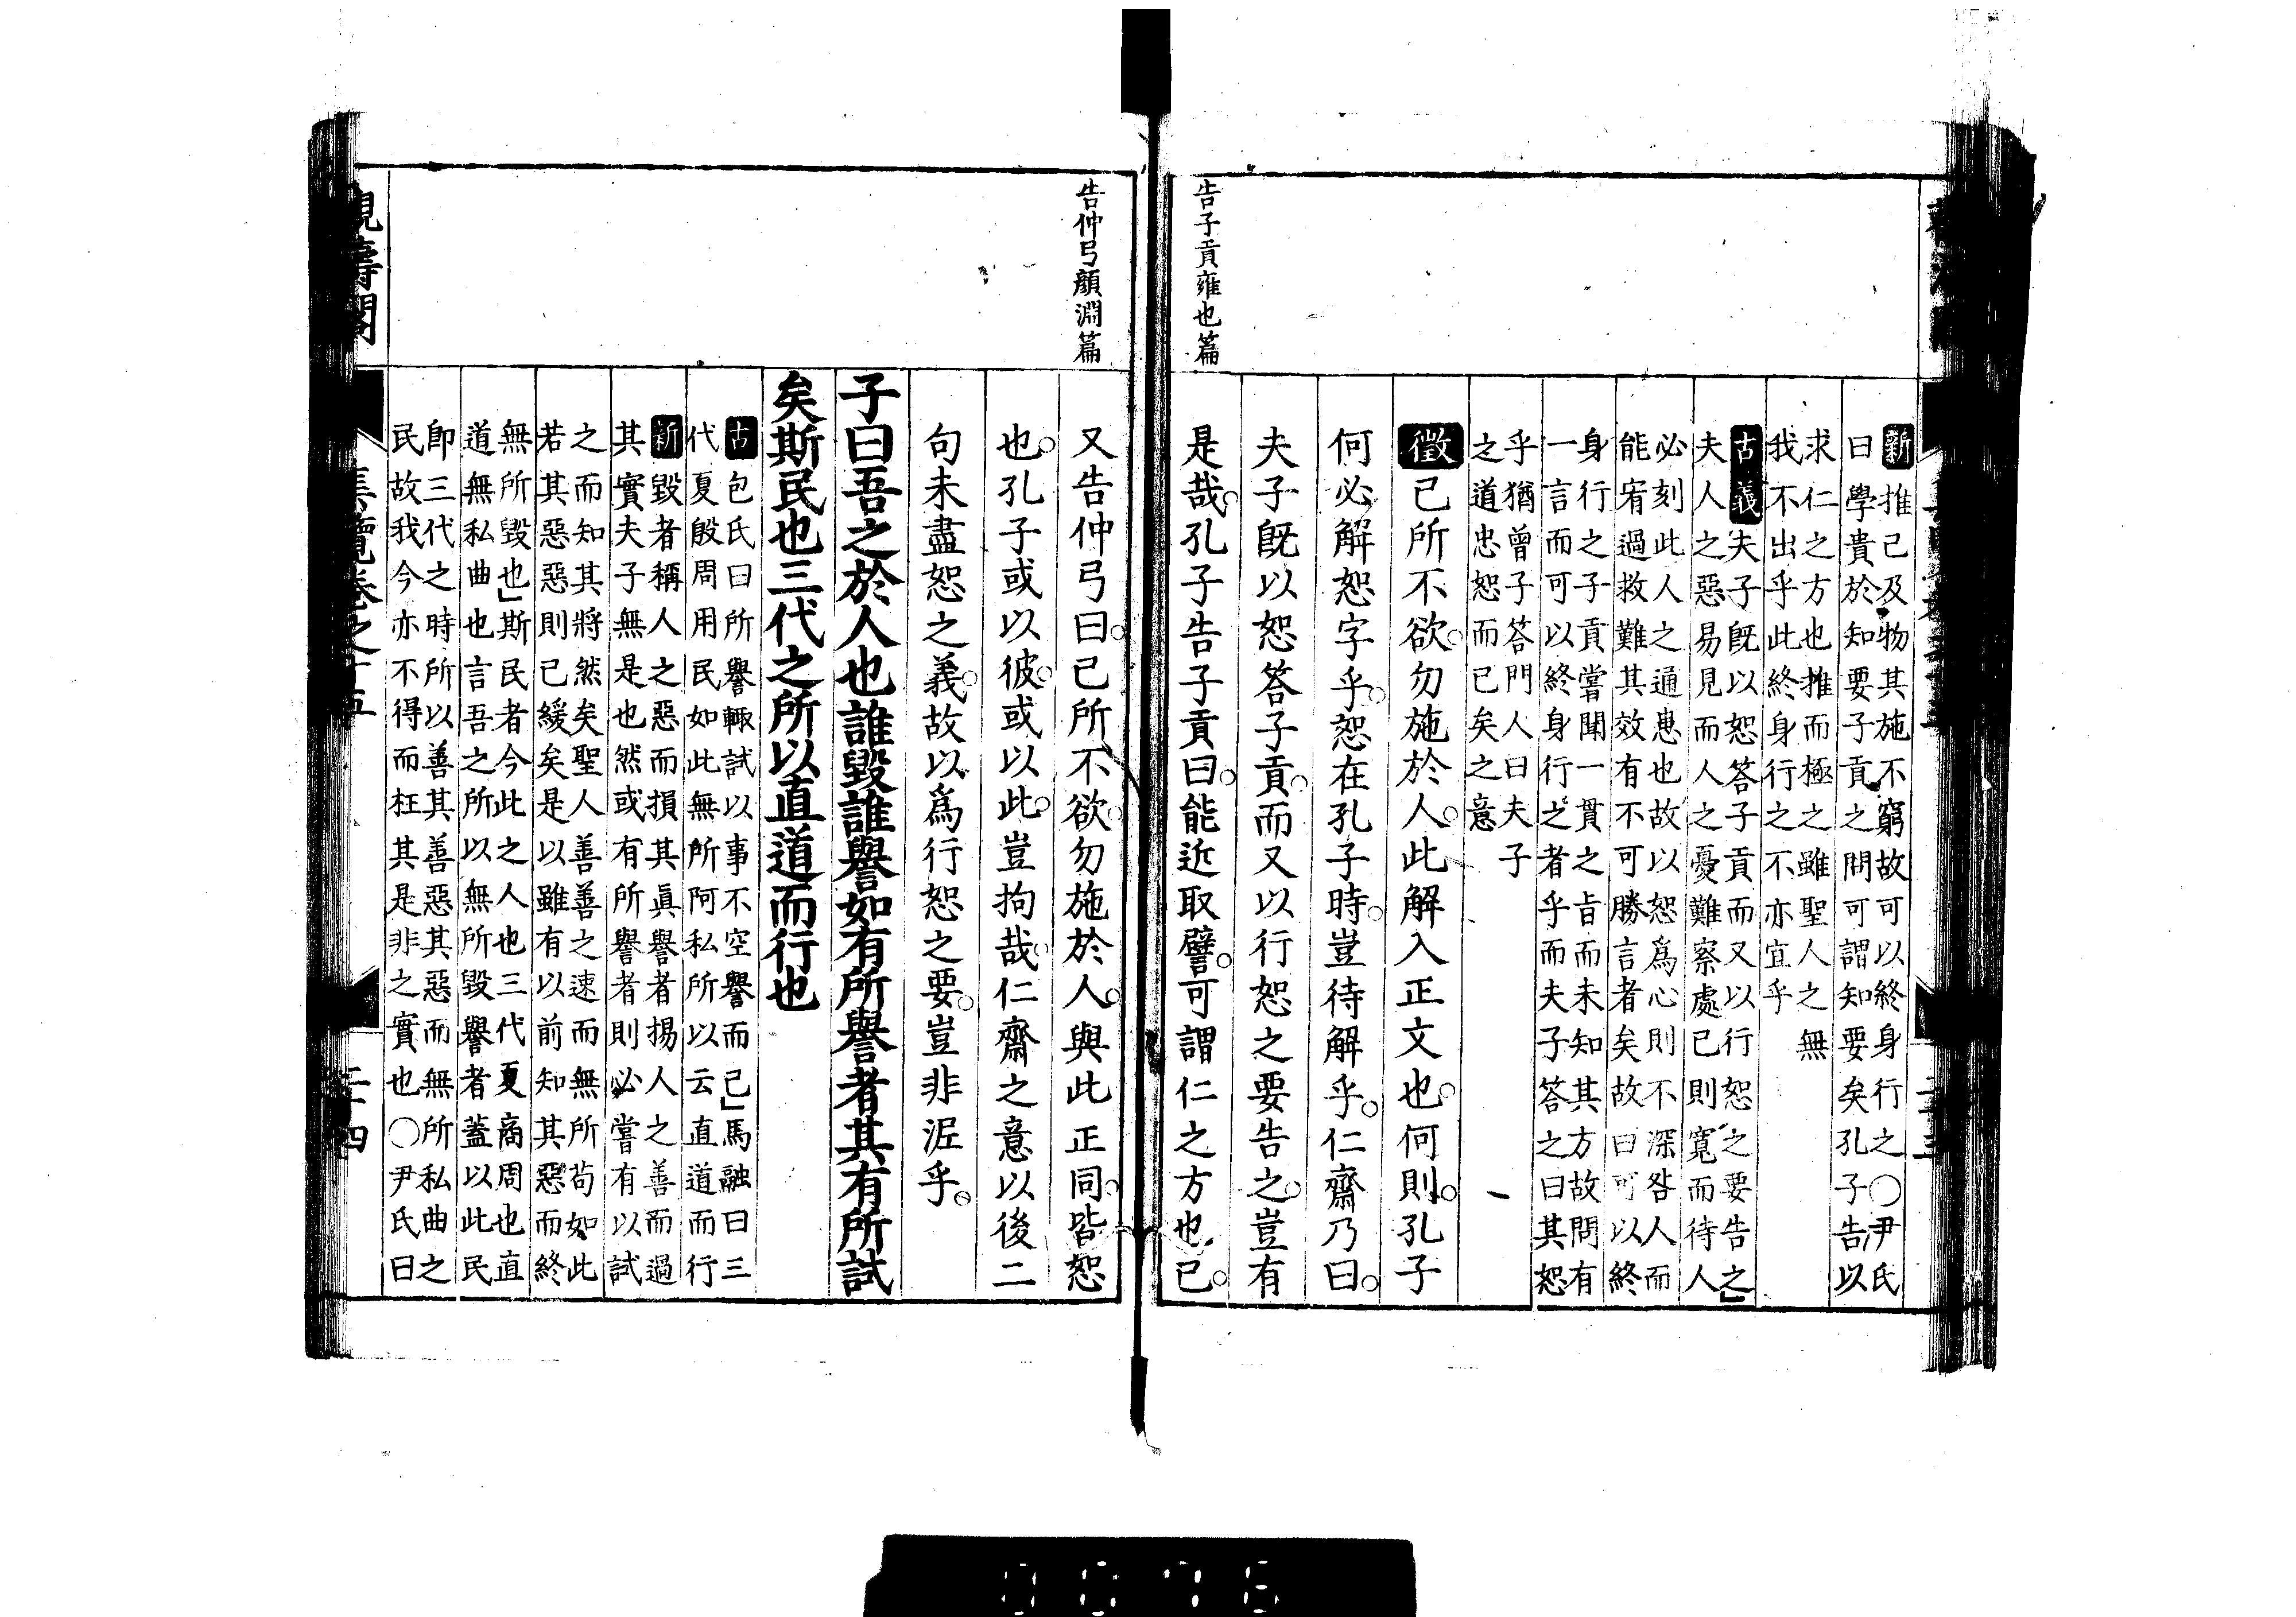 告子貢雍也篇
新推己及物其施不窮故可以終身行之○尹氏
曰學貴於知要子貢之問可謂知要矣孔子告以
求仁之方也推而極之雖聖人之無
我不出乎此終身行之不亦宜乎
古義夫子既以恕答子貢而又以行恕之要告之」
夫人之惡易見而人之憂難察處己則寬而待人
必刻此人之通患也故以恕爲心則不深咎人而
能宥過救難其效有不可勝言者矣故曰可以終
身行之子貢嘗聞一貫之旨而未知其方故問有
一言而可以終身行之者乎而夫子答之曰其恕
乎猶曾子答門人曰夫子
之道忠恕而已矣之意
徵己所不欲。勿施於人。此解入正文也。何則。孔子
何必解恕字乎。恕在孔子時。豈待解乎。仁齋乃曰。
夫子既以恕答子貢。而又以行恕之要告之。豈有
是哉。孔子告子貢曰。能近取譬。可謂仁之方也已。
告仲弓顏淵篇
又告仲弓曰。己所不欲。勿施於人。與此正同。皆恕
也。孔子或以彼。或以此。豈拘哉。仁齋之意以後二
句未盡恕之義。故以爲行恕之要。豈非泥乎。
子曰吾之於人也誰毀誰譽如有所譽者其有所試
矣斯民也三代之所以直道而行也
古包氏曰所譽輙試以事不空譽而已」馬融曰三
代夏殷周用民如此無所阿私所以云直道而行
新毀者稱人之惡而損其眞譽者揚人之善而過
其實夫子無是也然或有所譽者則必嘗有以試
之而知其將然矣聖人善善之速而無所苟如此
若其惡惡則已緩矣是以雖有以前知其惡而終
無所毀也」斯民者今此之人也三代夏商周也直
道無私曲也言吾之所以無所毀譽者蓋以此民
即三代之時所以善其善惡其惡而無所私曲之
民故我今亦不得而枉其是非之實也○尹氏曰
集覽卷之十五
二十四
0076